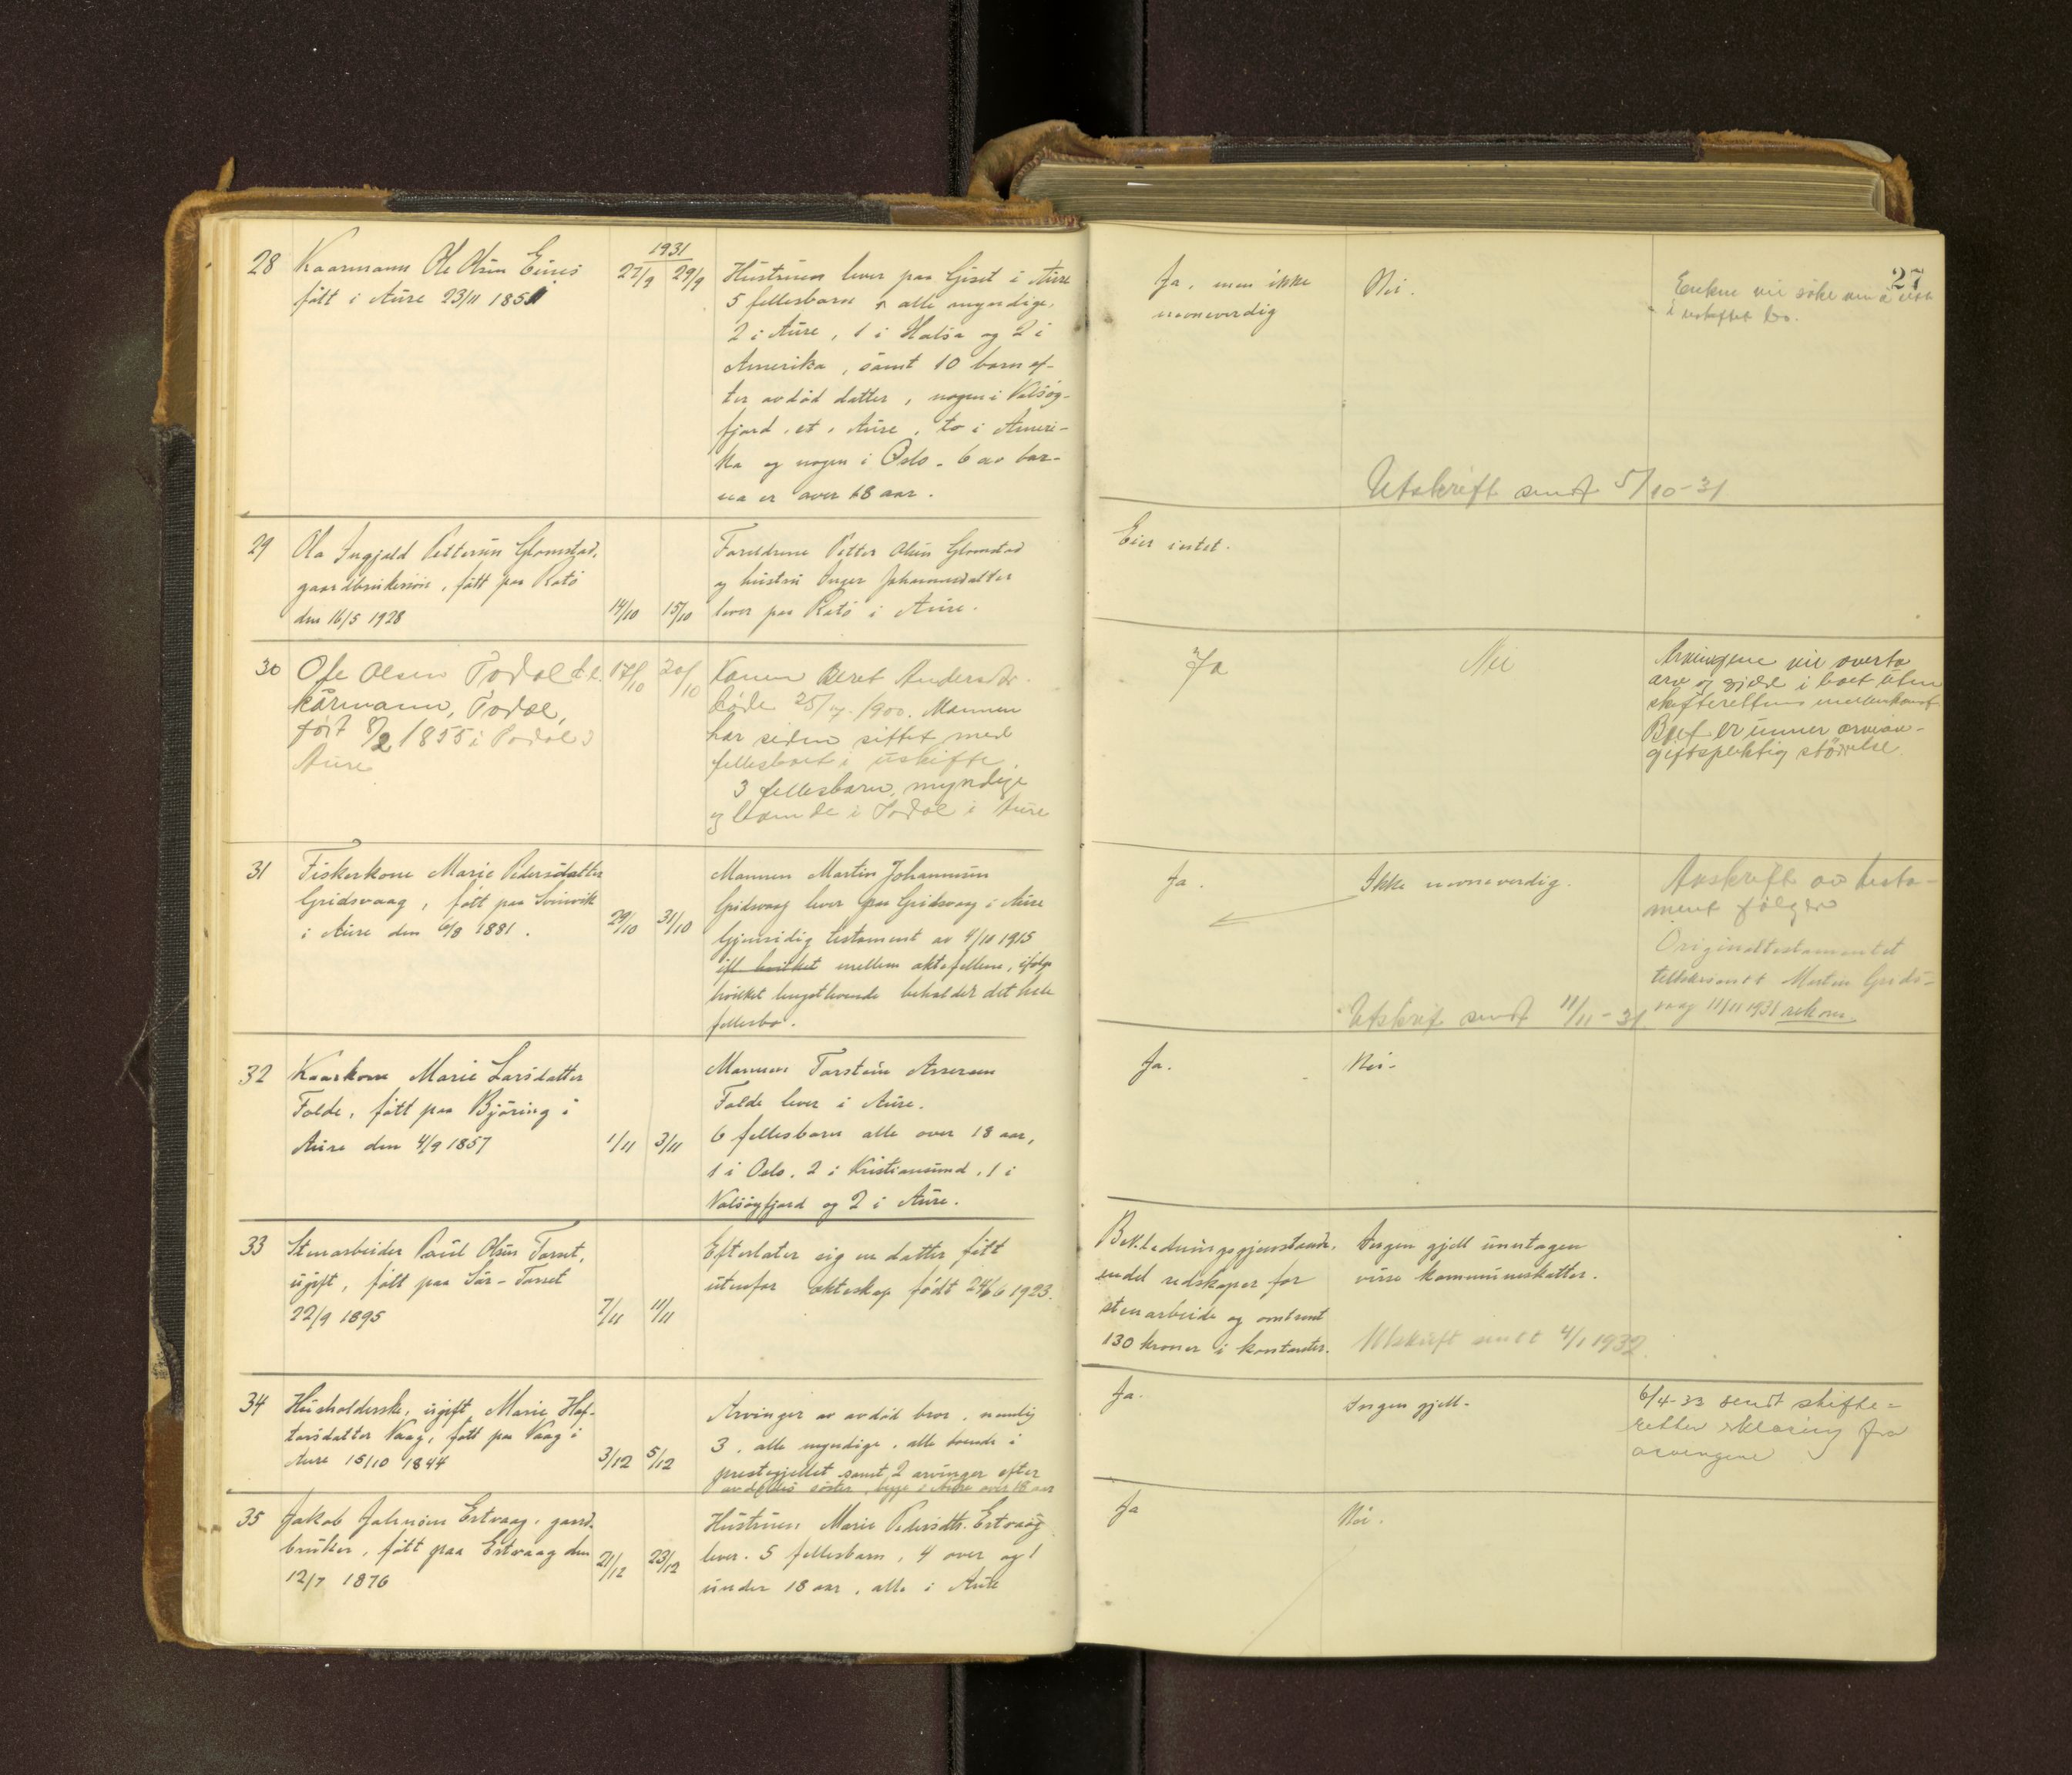 27
28
Kaarmann Ole Olsen Eines
født i Aure 23/11 1851
1931
27/9 29/9
Hustruen lever paa Gjset i Aure
5 fellesbarn alle myndige,
2 i Aure, 1 i Halsa og 2 i
Amerika, samt 10 barn ef-
ter avdød datter, nogen i Valsøy-
fjord, et i Aure, to i Ameri-
ka og nogen i Oslo. 6 av bar-
na er over 18 aar.
Ja, men ikke
nevneverdig
Nei.
Enken vil søke om å
i uskiftet bo.
Utskrift sendt 5/10-31
29
Ola Ingjald Pettersen Glomstad,
gaardbrukersøn, født paa Ratø
den 16/5 1928
14/10 15/10
Foreldrene Petter Olsen Glomstad
og hustru Inger Johannesdatter
lever paa Ratø i Aure.
Eier intet.
30
Ole Olsen Todal d.e.
kårmann, Todal,
født 8/2 1855 i Todal i
Aure
17/10 20/10
Konen Beret Andersdtr.
døde 25/ 1900. Mannen
har siden sittet med
fellesboet i uskifte.
3 fellesbarn, myndige
og boende i Todal i Aure
Ja
Nei
Arvingene vil overta
arv og gjeld i boet uten
skifterettens mellemkomst.
Boet er under arveav-
giftspliktig størrelse.
31
Fiskerkone Marie Pedersdatter
Gridsvaag, født paa Svinvik
i Aure den 6/8 1881.
29/10 31/10
Mannen Martin Johannessen
Gridsvaag lever paa Gridsvaag i Aure
Gjensidig testament av 4/10 1915
ifl hvilket mellem aktefellene, ifølge
hvilket lengstlevende beholder det hele
fellesbo.
Ja.
Ikke nevneverdig.
Avskrift av testa-
ment følger
Originaltestamentet
tilbakesendt Martin Grids-
vaag 11/11 1931 rekom.
Utskrift sendt 11/11-31
32
Kaarkone Marie Larsdatter
Folde, født paa Bjøring i
Aure den 4/9 1857
1/11 3/11
Mannen Torstein Assersen
Folde lever i Aure.
6 fellesbarn alle over 18 aar,
1 i Oslo, 2 i Kristiansund, 1 i
Valsøyfjord og 2 i Aure.
Ja.
Nei.
33
Stenarbeider Paul Olsen Torset,
ugift, født paa Sør-Torset
22/9 1895
7/11 11/11
Efterlater sig en datter født
utenfor ekteskap født 24/6 1923.
Bekledningsgjenstande,
endel redskaper for
stenarbeide og omtrent
130 kroner i kontanter.
Ingen gjeld unntagen
visse kommuneskatter.
Utskrift sendt 4/1 1932
34
Husholderske, ugift Marie Haf-
torsdatter Vaag, født paa Vaag i
Aure 15/10 1844
3/12 5/12
Arvinger av avdød bror, nemlig
3, alle myndige, alle boende i
prestegjeldet samt 2 arvinger efter
avdød søster, begge i Aure over 18 aar
Ja.
Ingen gjeld.
6/4-33 sendt skifte-
retten erklæring fra
arvingene
35
Jakob Johnsen Ertvaag, gaard-
bruker, født paa Ertvaag den
12/7 1876
21/12 23/12
Hustruen Marie Pedersdtr. Ertvaag
lever. 5 fellesbarn, 4 over og 1
under 18 aar, alle i Aure
Ja
Nei.